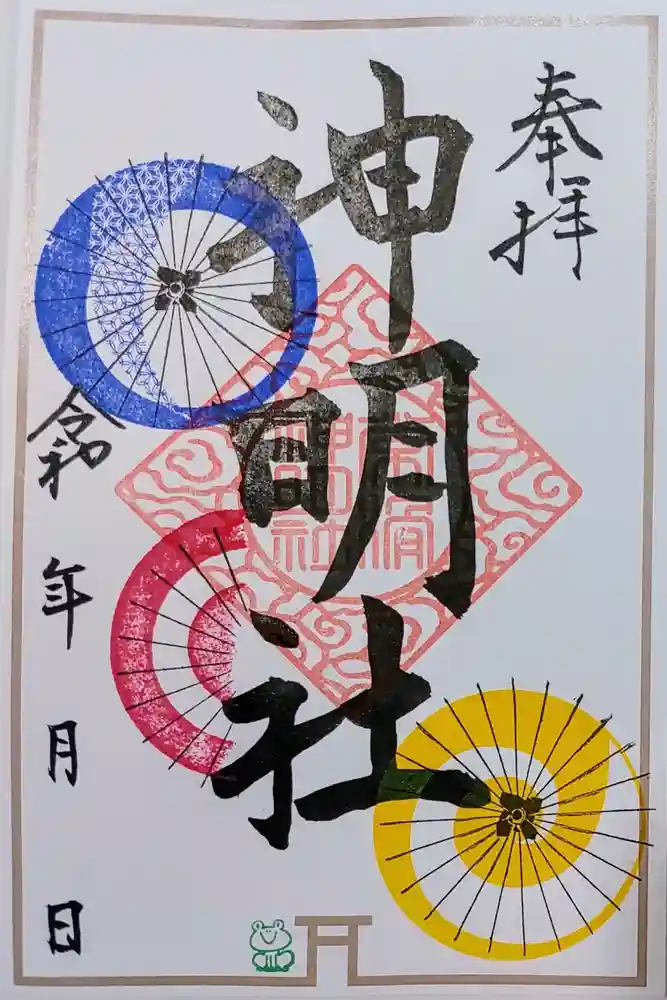 奉拝
神明社
令和 年 月 日